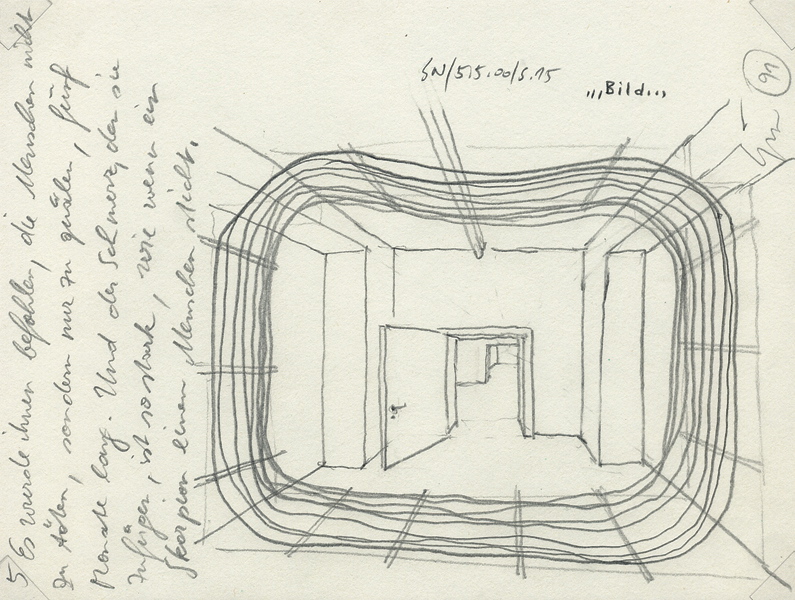 SN/515.00/S.15
„„Bild„„
91
5 Es wurde ihnen befohlen, die Menschen nicht
zu töten, sondern nur zu quälen, fünf
Monate lang. Und der Schmerz, den sie
zufügen, ist so stark, wie wenn ein
Skorpion einen Menschen sticht.